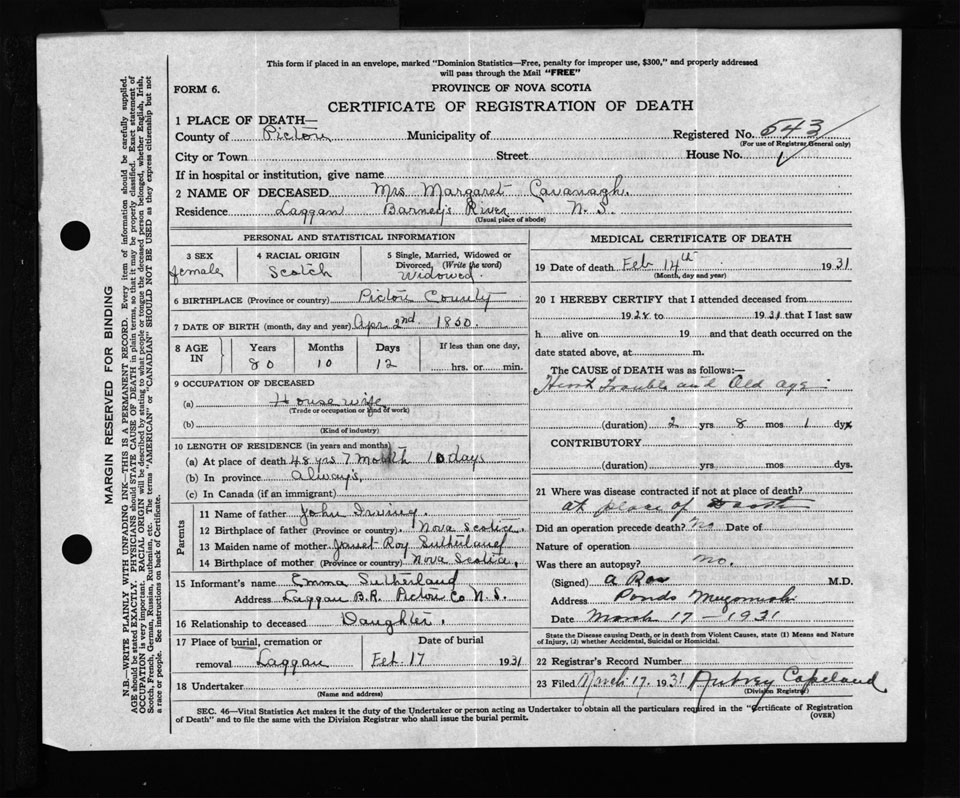 This form if placed in an envelope, marked "Dominion Statistics—Free, penalty for improper use, $300," and properly addressed
will pass through the Mail "FREE"
FORM 6.
PROVINCE OF NOVA SCOTIA
CERTIFICATE OF REGISTRATION OF DEATH
1 PLACE OF DEATH—
County of Pictou Municipality of Registered No. 543
(For use of Registrar General only)
City or Town Street House No.
If in hospital or institution, give name
2 NAME OF DECEASED Mrs Margaret Cavanagh.
Residence Laggan Barney's River N. S.
(Usual place of abode)
PERSONAL AND STATISTICAL INFORMATION
3 SEX
female
4 RACIAL ORIGIN
Scotch
5 Single, Married, Widowed or
Divorced, (Write the word)
Widowed.
6 BIRTHPLACE (Province or country) Pictou County
7 DATE OF BIRTH (month, day and year) Apr. 2nd. 1850.
8 AGE IN
Years Months Days If less than one day,
80 10 12 hrs. or min.
9 OCCUPATION OF DECEASED
(a) Housewife
(Trade or occupation or kind of work)
(b)
(Kind of industry)
10 LENGTH OF RESIDENCE (in years and months)
(a) At place of death 48 yrs 7 month 10 days
(b) In province always,
(c) In Canada (if an immigrant)
Parents
11 Name of father John Irving.
12 Birthplace of father (Province or country). Nova Scotia.
13 Maiden name of mother Janet Roy Sutherland
14 Birthplace of mother (Province or country) Nova Scotia.
15 Informant's name Emma Sutherland
Address Laggan B.R. Pictou Co N.S.
16 Relationship to deceased Daughter.
17 Place of burial, cremation or Date of burial
removal Laggan Feb. 17 1931
18 Undertaker
(Name and address)
MEDICAL CERTIFICATE OF DEATH
19 Date of death Feb 14th 1931
(Month, day and year)
20 I HEREBY CERTIFY that I attended deceased from
1928 to 1931 that I last saw
h alive on 19 and that death occurred on the
date stated above, at m.
The CAUSE of DEATH was as follows:—
Heart Trouble and Old age
(duration) 2 yrs 8 mos 1 dys
CONTRIBUTORY
(duration) yrs. mos. dys.
21 Where was disease contracted if not at place of death?
at place of death
Did an operation precede death? No Date of
Nature of operation
Was there an autopsy? no.
(Signed) A Ross M.D.
Address Ponds Merigomish
Date March 17 - 1931
State the Disease causing Death, or in death from Violent Causes, state (1) Means and Nature
of Injury, (2) whether Accidental, Suicidal or Homicidal.
22 Registrar's Record Number
23 Filed March 17. 1931 Aubrey Copeland
(Division Registrar)
SEC. 46—Vital Statistics Act makes it the duty of the Undertaker or person acting as Undertaker to obtain all the particulars required in the "Certificate of Registration
of Death" and to file the same with the Division Registrar who shall issue the burial permit.
(OVER)
MARGIN RESERVED FOR BINDING
N.B.—WRITE PLAINLY WITH UNFADING INK—THIS IS A PERMANENT RECORD. Every item of information should be carefully supplied.
AGE should be stated EXACTLY. PHYSICIANS should STATE CAUSE OF DEATH in plain terms, so that it may be properly classified. Exact statement of
OCCUPATION is very important. RACIAL ORIGIN will be described by stating to what people or tongue the deceased person belonged, whether English, Irish,
Scotch, French, German, Russian, Ruthenian, etc. The terms "AMERICAN" or "CANADIAN" SHOULD NOT BE USED as they express citizenship but not
a race or people. See instructions on back of Certificate.